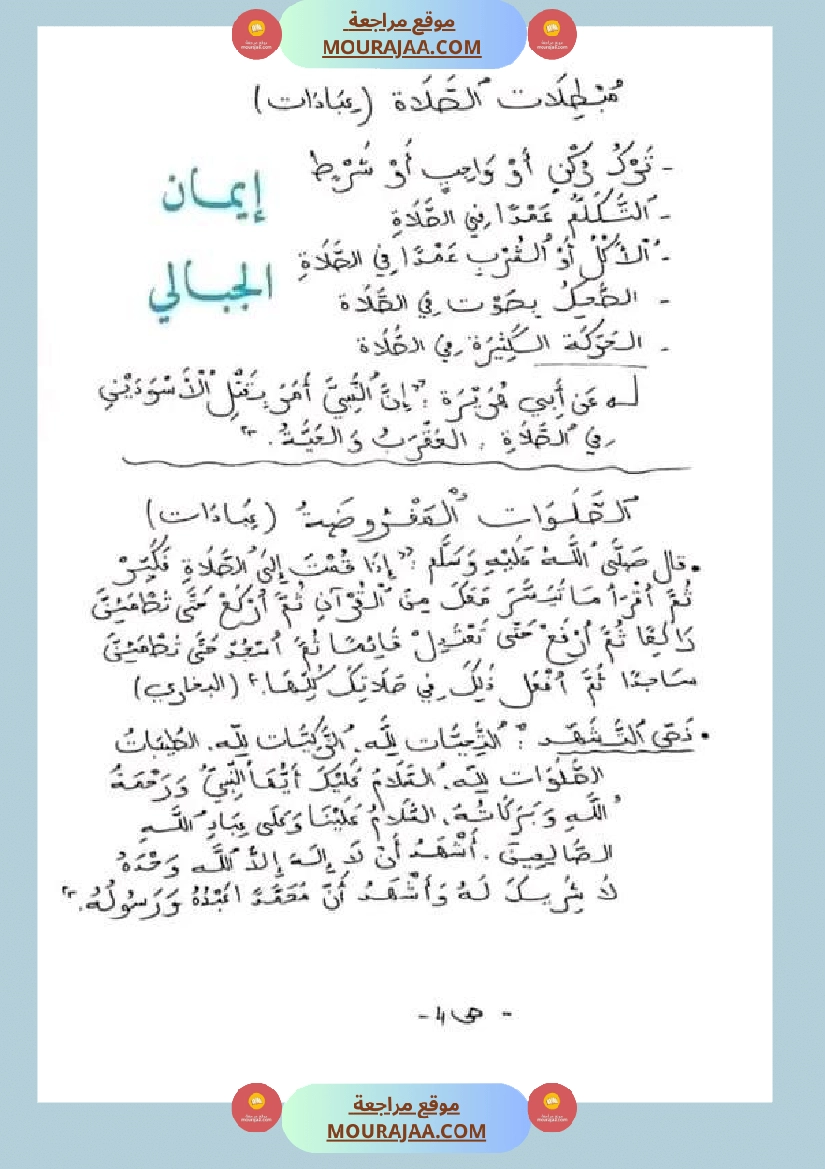 موقع مراجعة
MOURAJAA.COM
مُبْطِلَات الصَّلَاة (عِبَادَات)
- تَرْكُ رُكْنٍ أَوْ وَاجِبٍ أَوْ شَرْطٍ
- التَّكَلُّمُ عَمْدًا فِي الصَّلَاةِ
- الْأَكْلُ أَوْ الشُّرْبِ عَمْدًا فِي الصَّلَاةِ
- الضَّحِكُ بِصَوْت فِي الصَّلَاة
- الحَرَكَة الكَثِيرَة فِي الصَّلَاة
إيمان
الجبالي
عَن أَبِي هُرَيْرَة : "إِنَّ النَّبِيَّ أَمَرَ بِقَتْلِ الْأَسْوَدَيْنِ
فِي الصَّلَاةِ : العَقْرَبُ وَالحَيَّةُ."
الصَّلَوَات الْمَفْرُوضَةُ (عِبَادَات)
• قال صَلَّى اللَّهُ عَلَيْهِ وَسَلَّم : "إِذَا قُمْتَ إِلَى الصَّلَاةِ فَكَبِّرْ
ثُمَّ اقْرَأ مَا تَيَسَّرَ مَعَكَ مِنَ الْقُرْآنِ ثُمَّ ارْكَعْ حَتَّى تَطْمَئِنَّ
رَاكِعًا ثُمَّ ارْفَعْ حَتَّى تَعْتَدِلَ قَائِمًا ثُمَّ اسْجُدْ حَتَّى تَطْمَئِنَّ
سَاجِدًا ثُمَّ افْعَل ذَلِكَ فِي صَلَاتِكَ كُلِّهَا." (البخاري)
• نَصّ التَّشَهُّد : "التَّحِيَّات لِلَّه. الزَّكِيَّات لِلّه. الطَّيِّبَاتُ
الصَّلَوَات لِلّه. السَّلَامُ عَلَيْكَ أَيُّهَا النَّبِيّ وَرَحْمَةُ
اللَّهِ وَبَرَكَاتُهُ. السَّلَامُ عَلَيْنَا وَعَلَى عِبَادِ اللَّهِ
الصَّالِحِينَ. أَشْهَدُ أَنْ لَا إِلَهَ إِلَّا اللَّه وَحْدَهُ
لَا شَرِيكَ لَهُ وَأَشْهَدُ أَنَّ مُحَمَّدًا عَبْدُهُ وَرَسُولُهُ."
- ص4 -
موقع مراجعة
MOURAJAA.COM